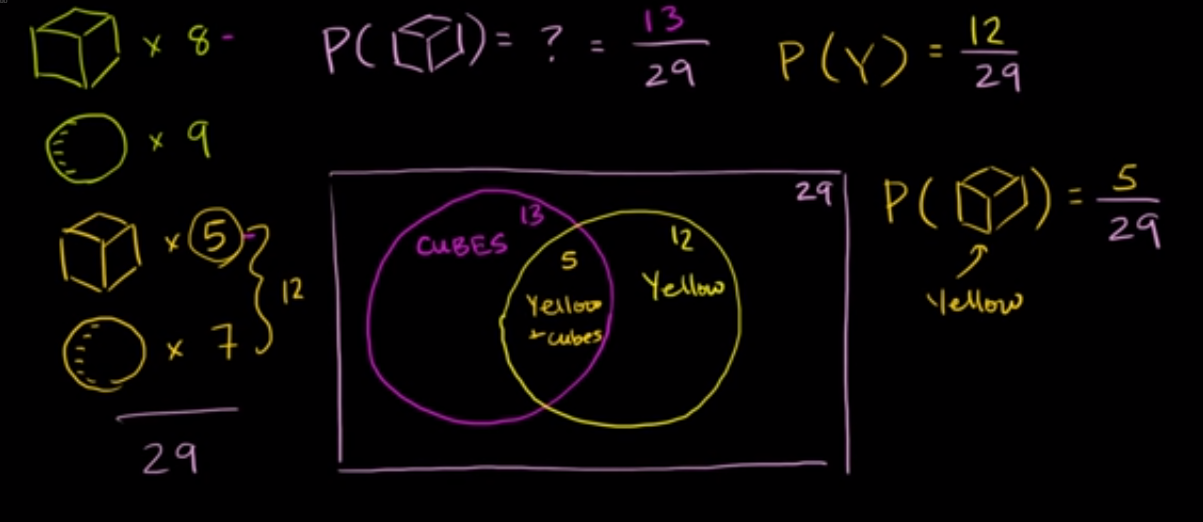 × 8 -
P( ) = ? = 13/29
P(Y) = 12/29
× 9
× 5 -
× 7
12
29
29
13
CUBES
12
Yellow
5
Yellow
+ cubes
P( ) = 5/29
Yellow